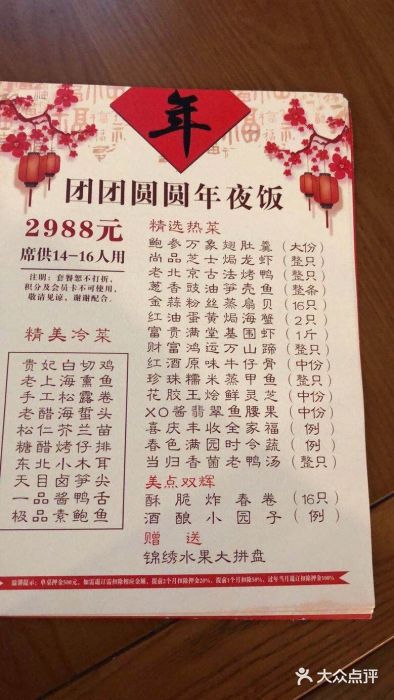 年
团团圆圆年夜饭
2988元
席供14-16人用
注明：套餐恕不打折，
积分及会员卡不可使用，
敬请见谅，谢谢配合。
精美冷菜
贵妃白切鸡
老上海熏鱼
手工松露卷
老醋海蜇头
松仁芥兰苗
糖醋烤仔排
东北小木耳
天目卤笋尖
一品酱鸭舌
极品素鲍鱼
精选热菜
鲍参万象翅肚羹（大份）
尚品芝士焗龙虾（整只）
老北京古法烤鸭（整只）
葱香豉油笋壳鱼（整条）
金蒜粉丝蒸扇贝（16只）
红油蛋黄焗海蟹（2只）
富贵满堂基围虾（1斤）
财富鸿运万山蹄（整只）
红酒原味牛仔骨（中份）
珍珠糯米蒸甲鱼（整只）
花胶王烩鲜灵芝（中份）
XO酱翡翠鱼腰果（中份）
喜庆丰收全家福（例）
春色满园时令蔬（例）
当归香菌老鸭汤（整只）
美点双辉
酥脆炸春卷（16只）
酒酿小园子（例）
赠送
锦绣水果大拼盘
温馨提示：单桌押金500元，如需退订需扣除相应金额，提前2个月扣除押金20%，提前1个月扣除50%，过年当月退订扣除押金100%
大众点评